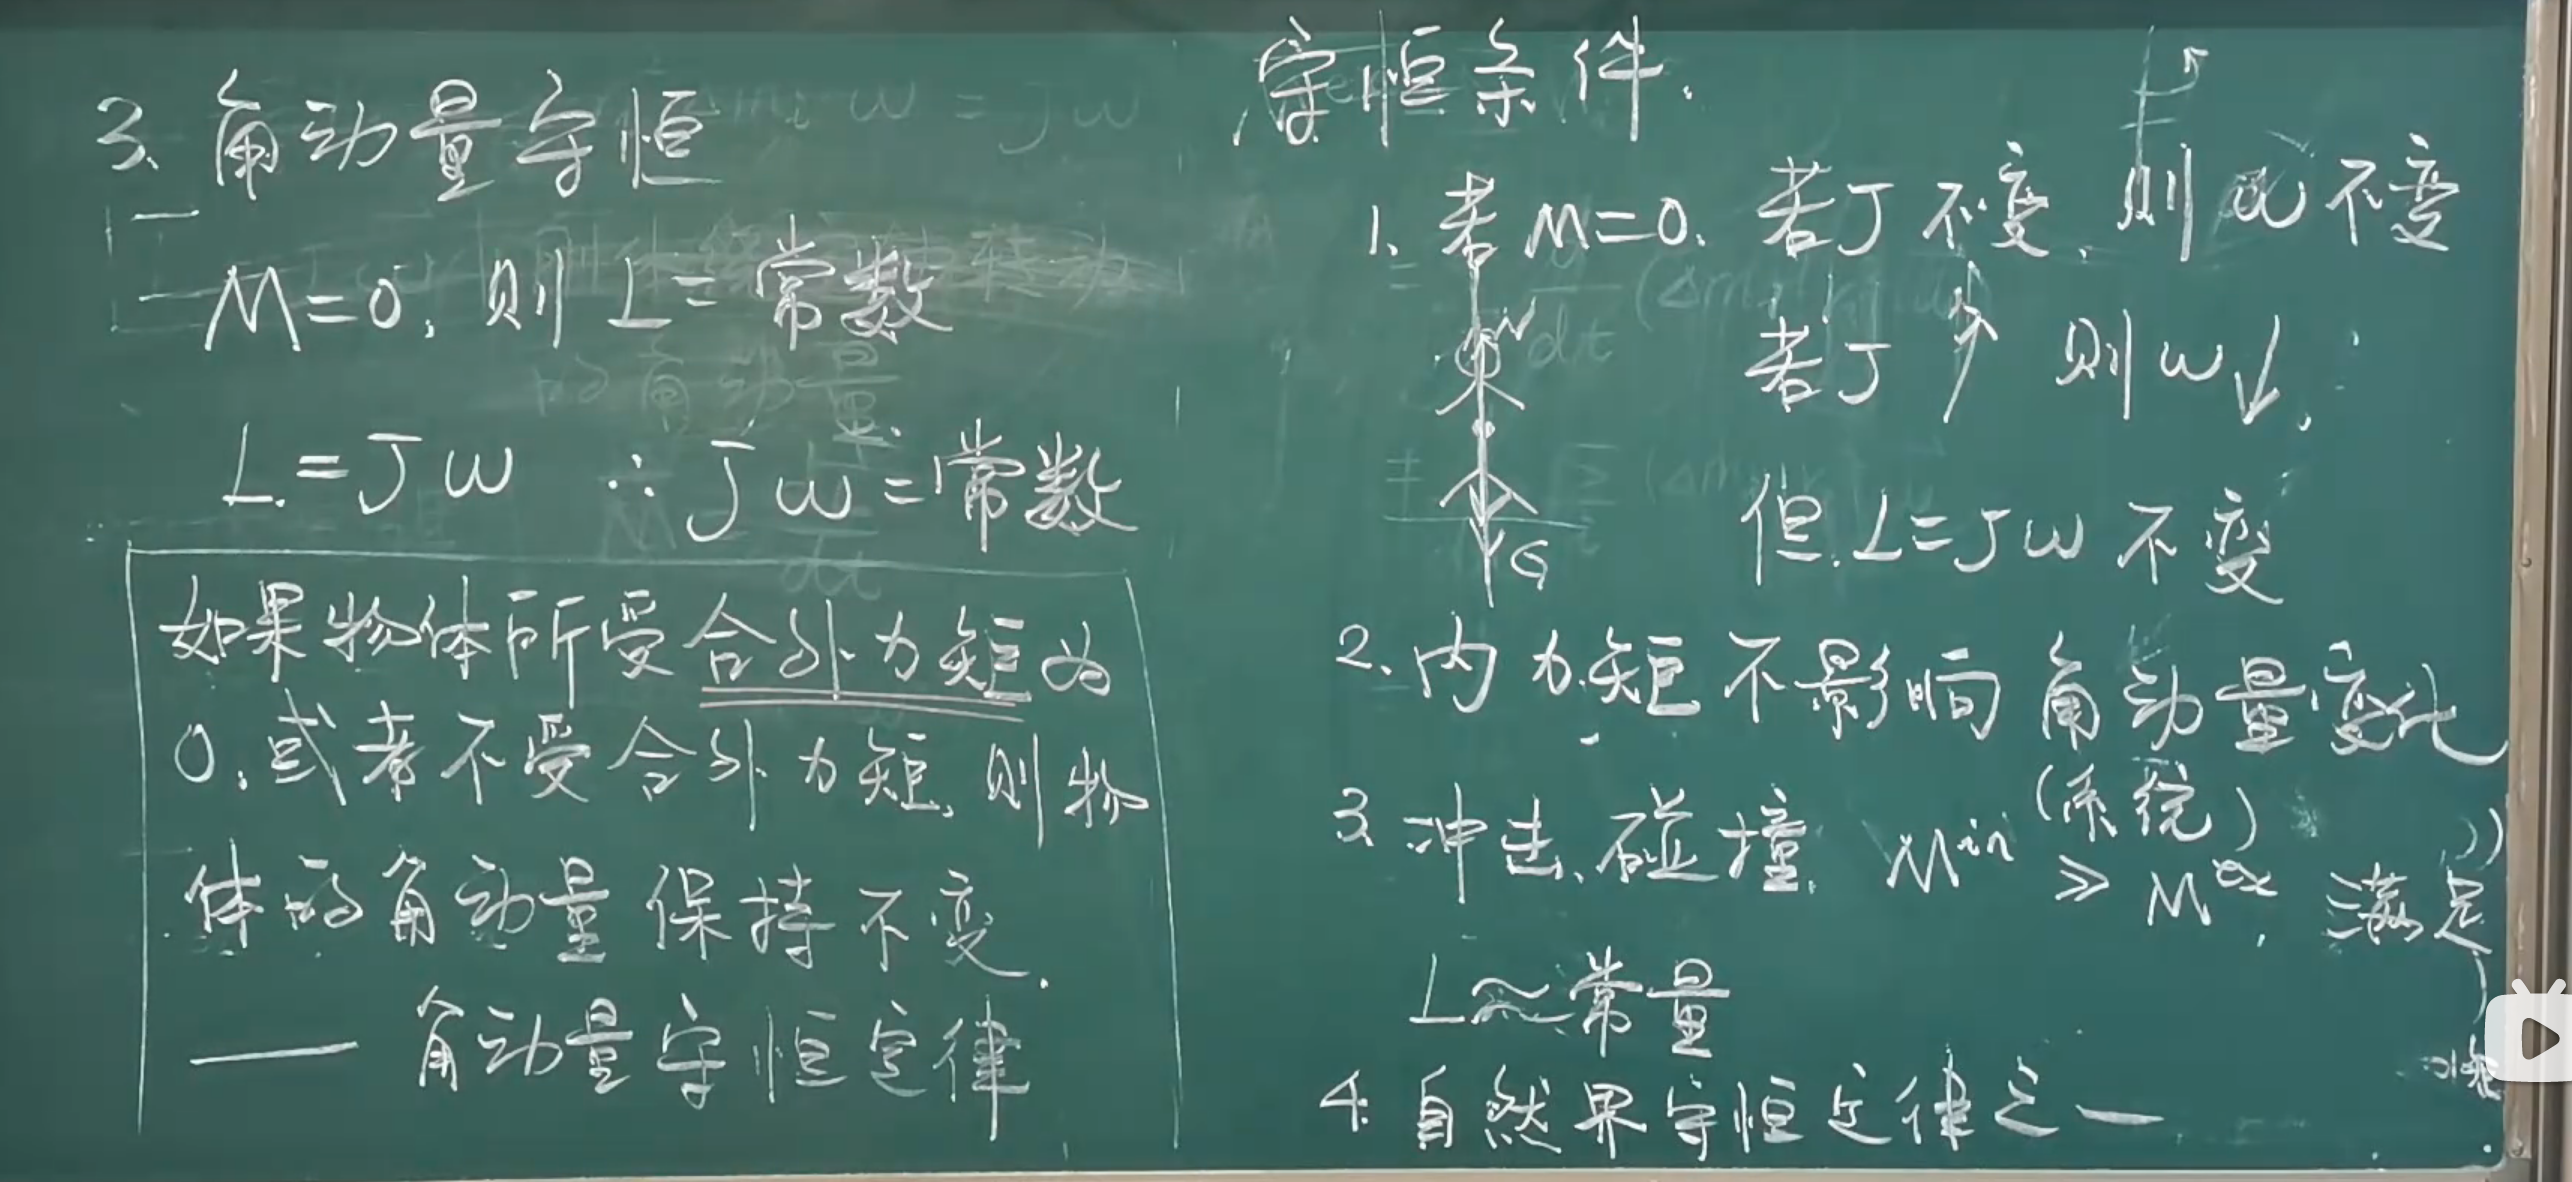 3. 角动量守恒
M=0, 则 L=常数
L=Jω ∴ Jω=常数
如果物体所受合外力矩为
0,或者不受合外力矩,则物
体的角动量保持不变.
—— 角动量守恒定律
守恒条件.
1. 若 M=0. 若J不变,则ω不变
若J↑ 则ω↓.
N
G
但.L=Jω不变
2. 内力矩不影响角动量变化
(系统)
3. 冲击、碰撞. M^in ≫ M^ex, 满足
L≈常量
4. 自然界守恒定律之一